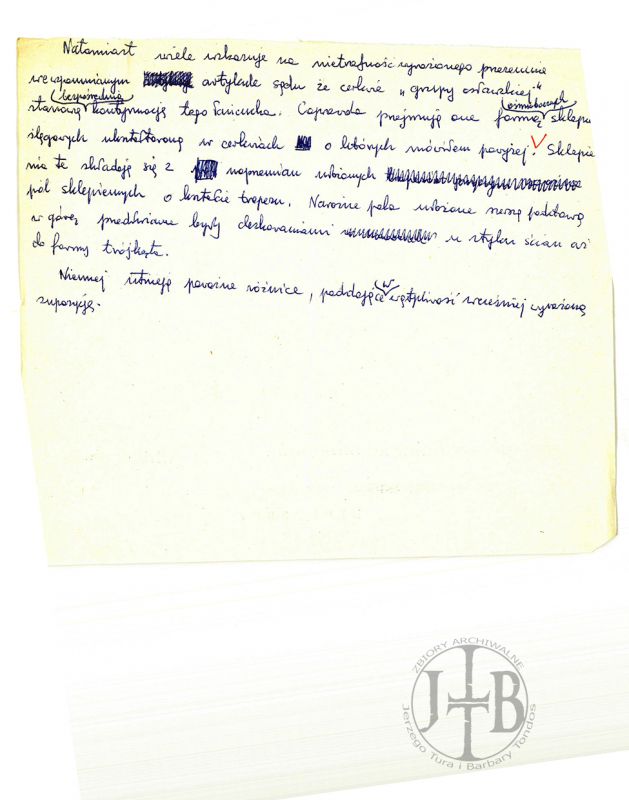 Natomiast wiele wskazuje na nietrafność wyrażonego przeze mnie
we wspomnianym artykule sądu że cerkwie „grupy osławskiej"
stanowią bezpośrednią kontynuację tego łańcucha. Coprawda przejmują one formę ośmiobocznych sklepień
zlęgowych ukształtowaną w cerkwiach o których mówiłem powyżej. Sklepie
nia te składają się z naprzemian ułożonych
pól sklepiennych o kształcie trapezu. Narożne pola ułożone szerszą podstawą
w górę, przedłużane były deskowaniami w styku ścian aż
do formy trójkąta.
Niemniej istnieją poważne różnice, poddające w wątpliwość wcześniej wyrażoną
supozycję.
ZBIORY ARCHIWALNE
JTB
Jerzego Tura i Barbary Tondos